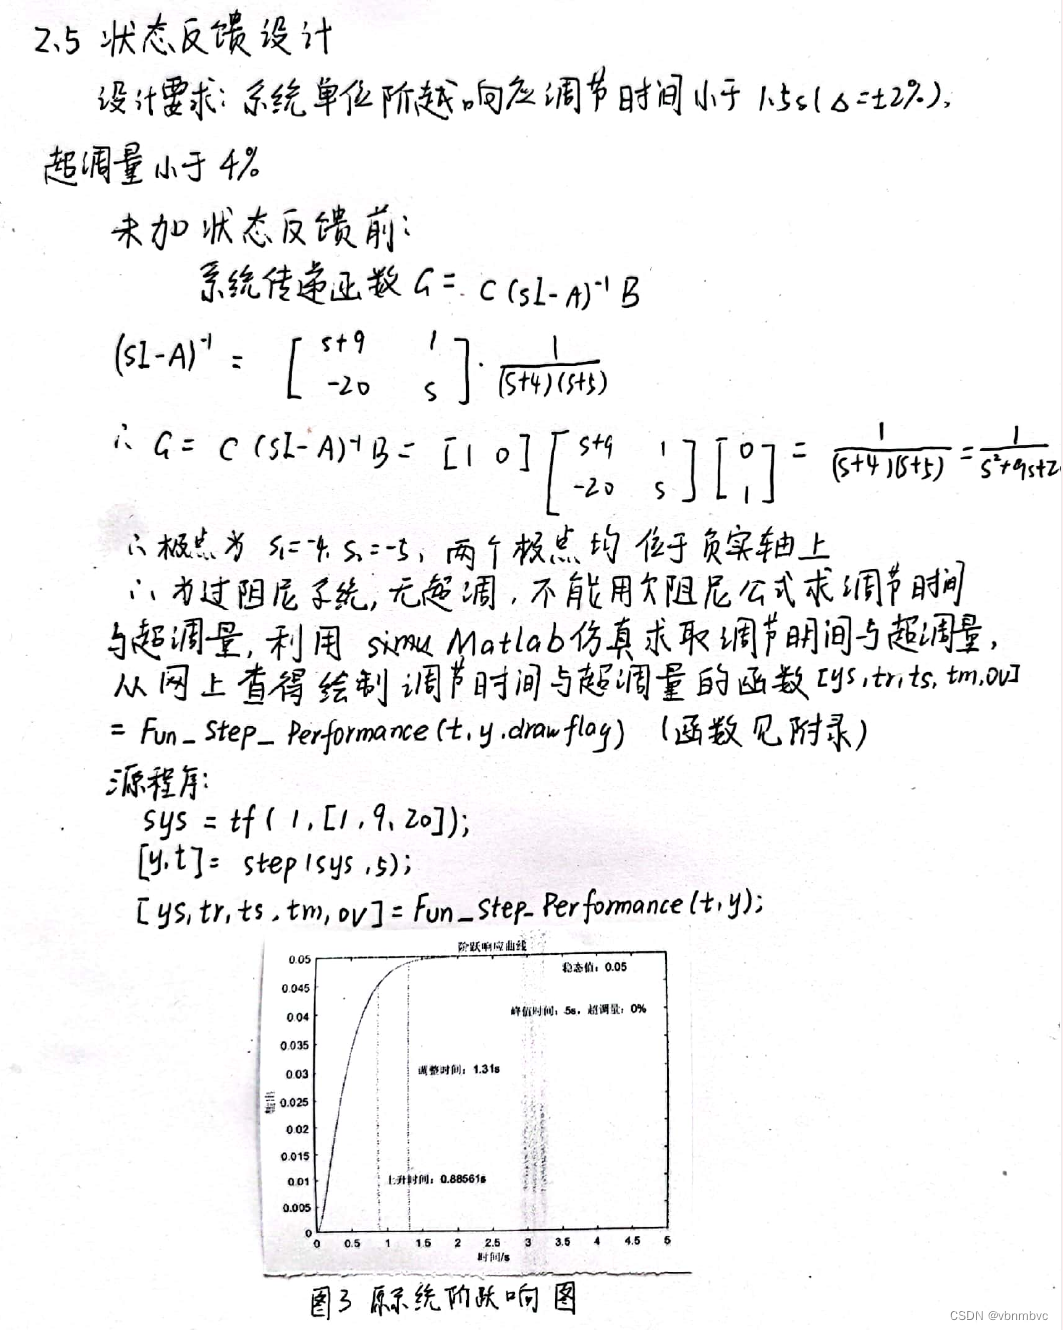 2.5 状态反馈设计
设计要求: 系统单位阶越响应调节时间小于 1.5s(Δ=±2%),
超调量小于 4%
未加状态反馈前:
系统传递函数 G = C(sI-A)⁻¹B
(sI-A)⁻¹ = [ s+9 1 ; -20 s ] · 1/((s+4)(s+5))
∴ G = C(sI-A)⁻¹B = [1 0] [ s+9 1 ; -20 s ] [ 0 ; 1 ] = 1/((s+4)(s+5)) = 1/(s²+9s+2
∴ 极点为 s₁=-4, s₂=-5, 两个极点均位于负实轴上
∴ 为过阻尼系统, 无超调, 不能用欠阻尼公式求调节时间
与超调量, 利用 Matlab仿真求取调节时间与超调量,
从网上查得绘制调节时间与超调量的函数[ys,tr,ts,tm,ov]
= Fun_Step_Performance(t,y,drawflag) (函数见附录)
源程序:
sys = tf(1,[1,9,20]);
[y,t]= step(sys,5);
[ys,tr,ts,tm,ov]=Fun_Step_Performance(t,y);
阶跃响应曲线
稳态值: 0.05
峰值时间: 5s, 超调量: 0%
调整时间: 1.31s
上升时间: 0.88561s
输出
0.05
0.045
0.04
0.035
0.03
0.025
0.02
0.015
0.01
0.005
0
0 0.5 1 1.5 2 2.5 3 3.5 4 4.5 5
时间/s
图3 原系统阶跃响图
CSDN @vbnmbvc